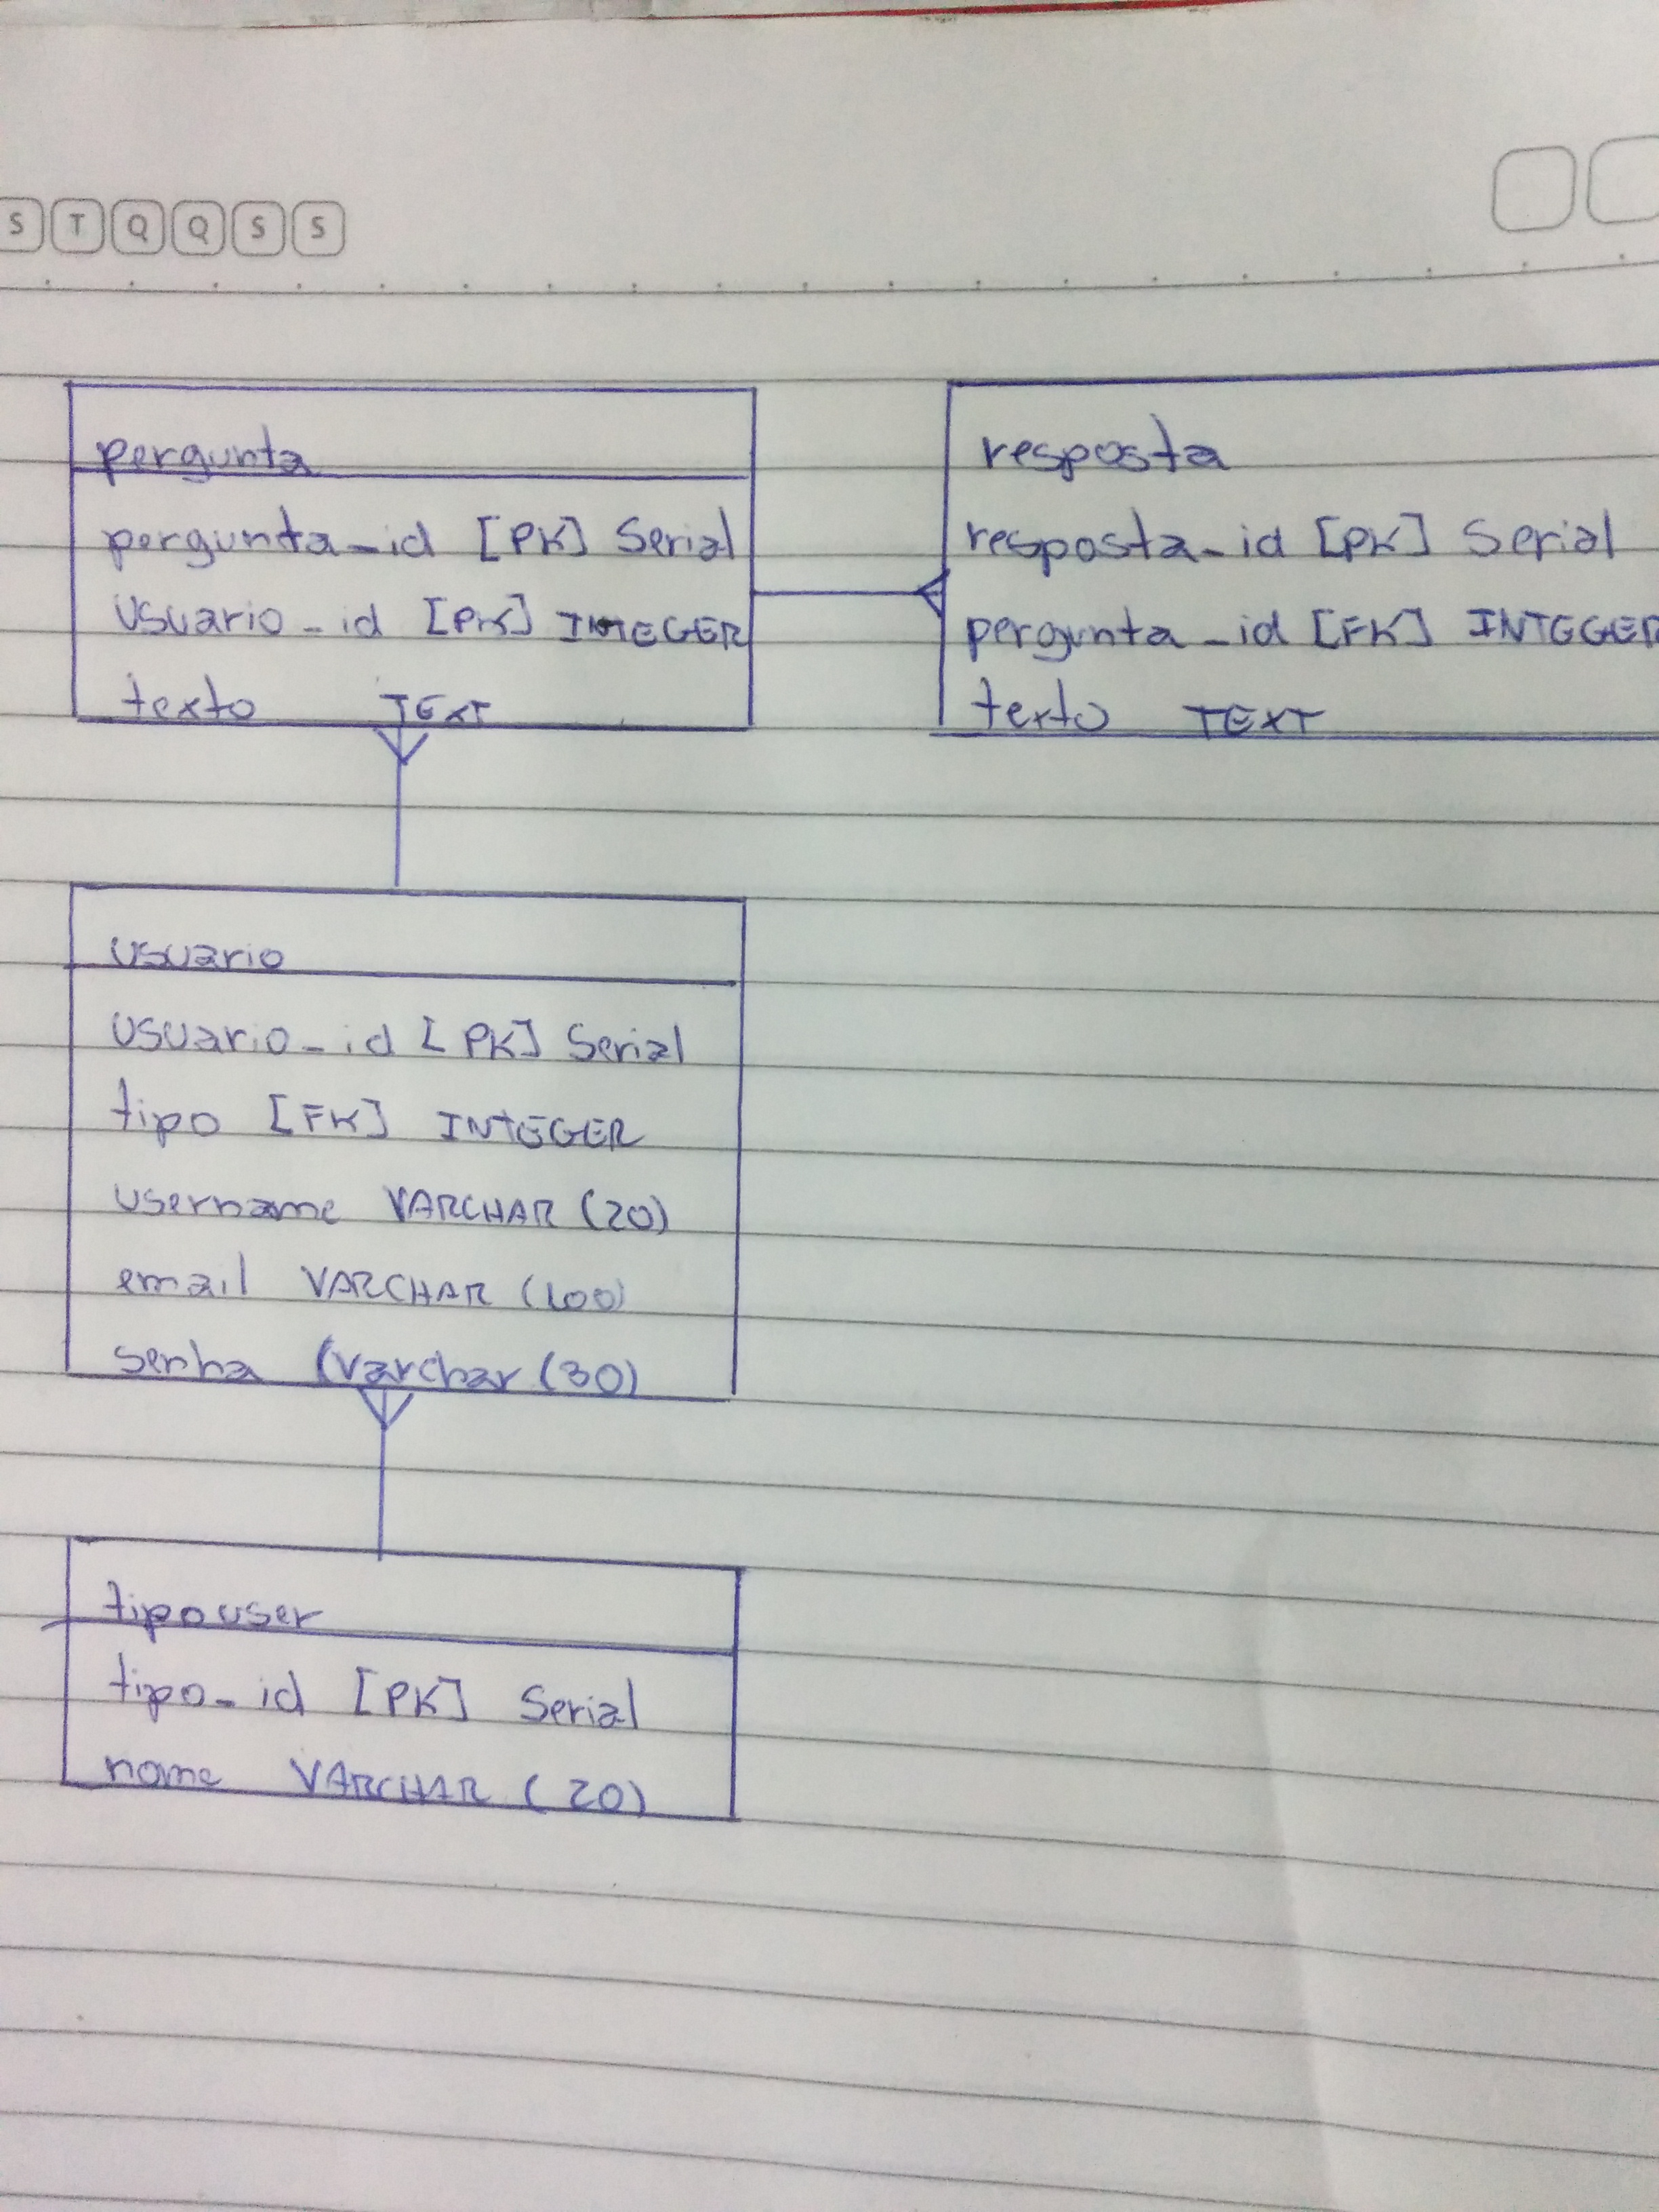 S T Q Q S S
pergunta
pergunta_id [PK] Serial
usuario_id [PK] INTEGER
texto TEXT
resposta
resposta_id [PK] Serial
pergunta_id [FK] INTEGER
texto TEXT
usuario
usuario_id [PK] Serial
tipo [FK] INTEGER
username VARCHAR (20)
email VARCHAR (100)
senha (varchar (30)
tipouser
tipo_id [PK] Serial
nome VARCHAR (20)